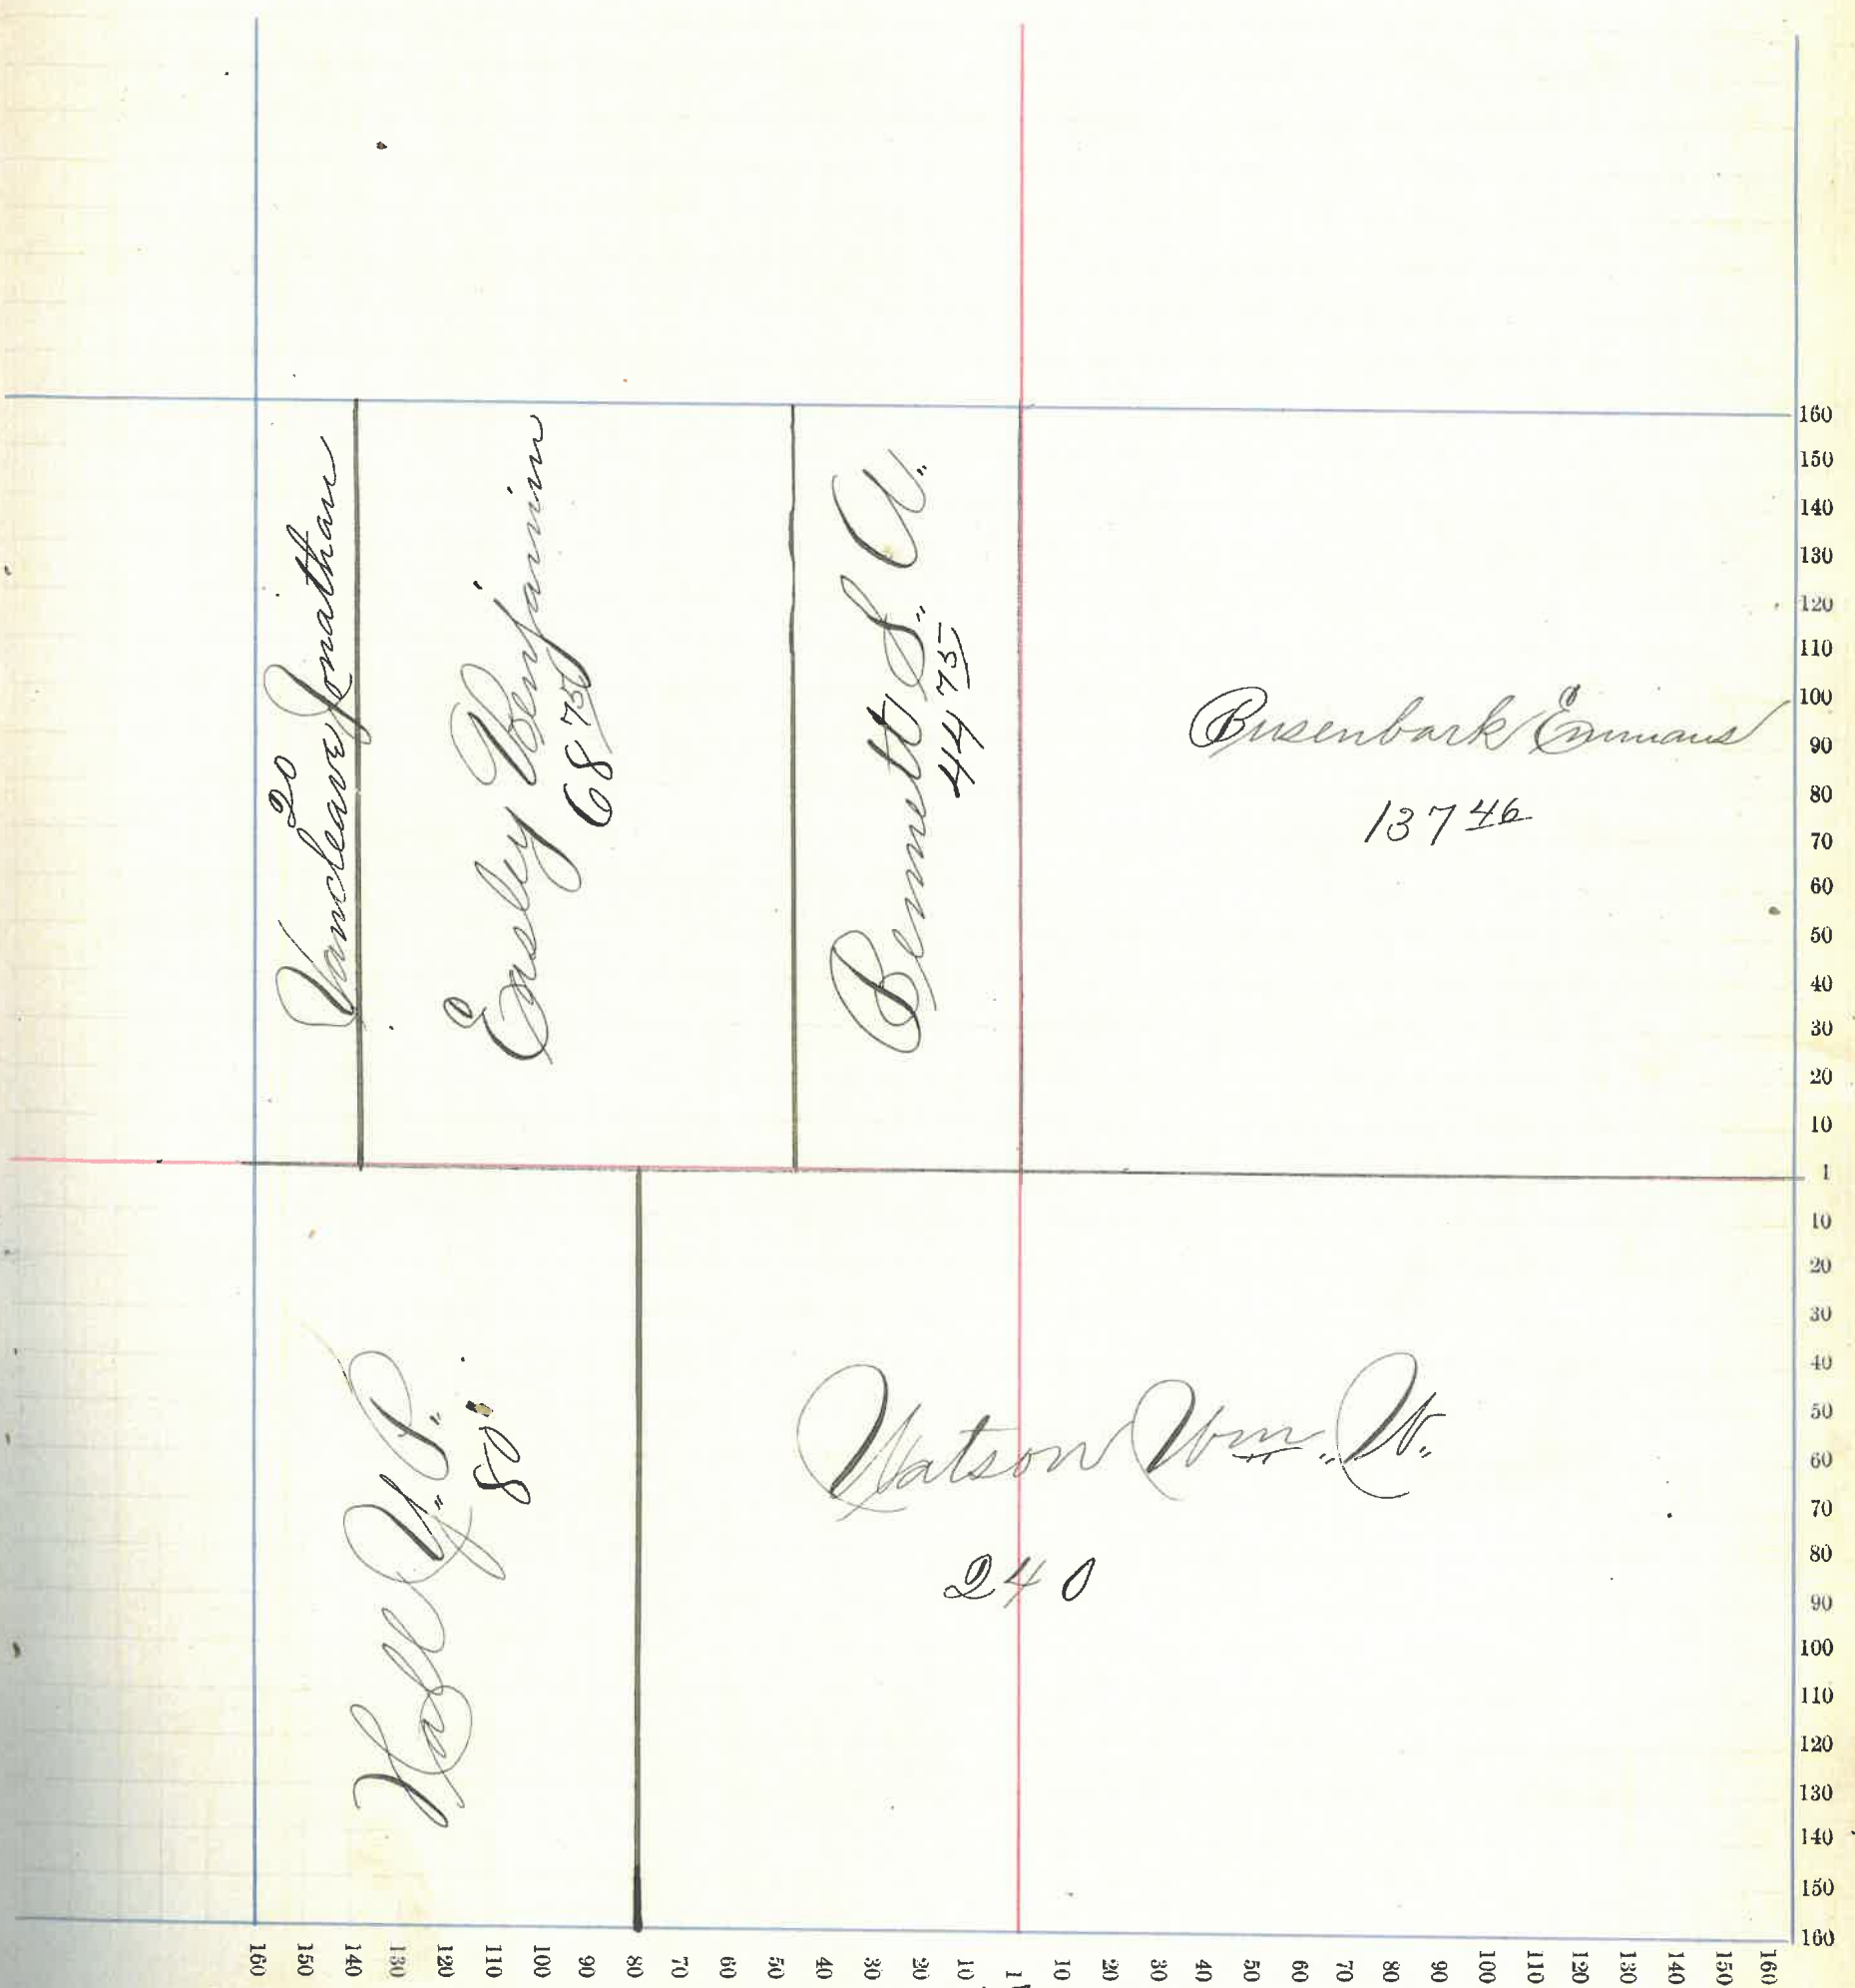 20
Vancleave Jonathan
Easley Benjamin
68 75
Bennett S. A.
44 75
Busenbark Emmaus
137 46
160
150
140
130
120
110
100
90
80
70
60
50
40
30
20
10
1
10
20
30
40
50
60
70
80
90
100
110
120
130
140
150
160
Y. P.
80
Watson Wm. W.
240
160 150 140 130 120 110 100 90 80 70 60 50 40 30 20 10 1 10 20 30 40 50 60 70 80 90 100 110 120 130 140 150 160